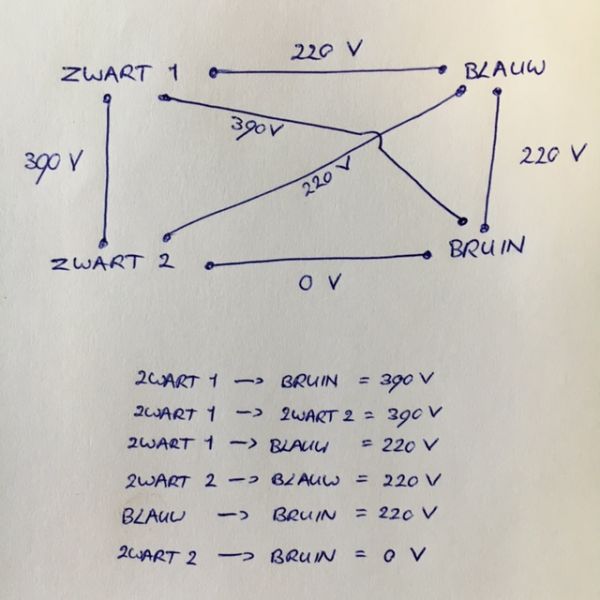 220 V
ZWART 1 BLAUW
390 V
390 V 220 V
220 V
ZWART 2 BRUIN
0 V
ZWART 1 —> BRUIN = 390 V
ZWART 1 —> ZWART 2 = 390 V
ZWART 1 —> BLAUW = 220 V
ZWART 2 —> BLAUW = 220 V
BLAUW —> BRUIN = 220 V
ZWART 2 —> BRUIN = 0 V